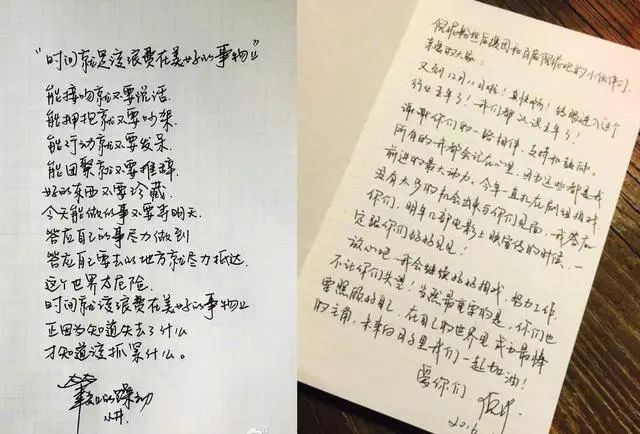 "时间就是该浪费在美好的事物上"
能接吻就不要说话.
能拥抱就不要吵架.
能行动就不要发呆.
能团聚就不要推辞.
好的东西不要珍藏.
今天能做的事不要等明天.
答应自己的事尽力做到
答应自己要去的地方就尽力抵达.
这个世界太危险.
时间就该浪费在美好的事物上
正因为知道失去了什么
才知道该抓紧什么。
的躁动
倪妮粉丝后援团和百度倪妮吧的小伙伴们.
亲爱的大家:
又到12月11日啦！真快啊！转眼进入这个
行业五年了！我们都又认识五年了！
谢谢你们的一路相伴、支持和鼓励。
所有的我都会记在心里.因为这些都是我
前进的最大动力。今年一直扎在剧组拍戏
没有太多的机会出来与你们见面.我答应
你们.明年几部电影上映宣传的时候.一
定跟你们好好见见！
放心吧.我会继续好好拍戏.努力工作.
不让你们失望！当然最重要的是，你们也
要照顾好自己.在自己的世界里成为最棒
的主角.未来的日子里我们一起加油！
爱你们 倪妮
2016